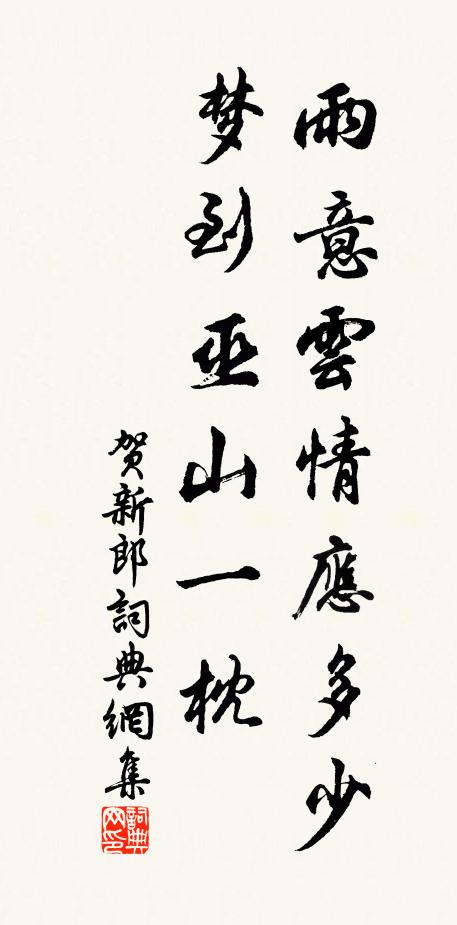 雨意雲情應多少
梦到巫山一枕
贺新郎詞典網集
詞典网印